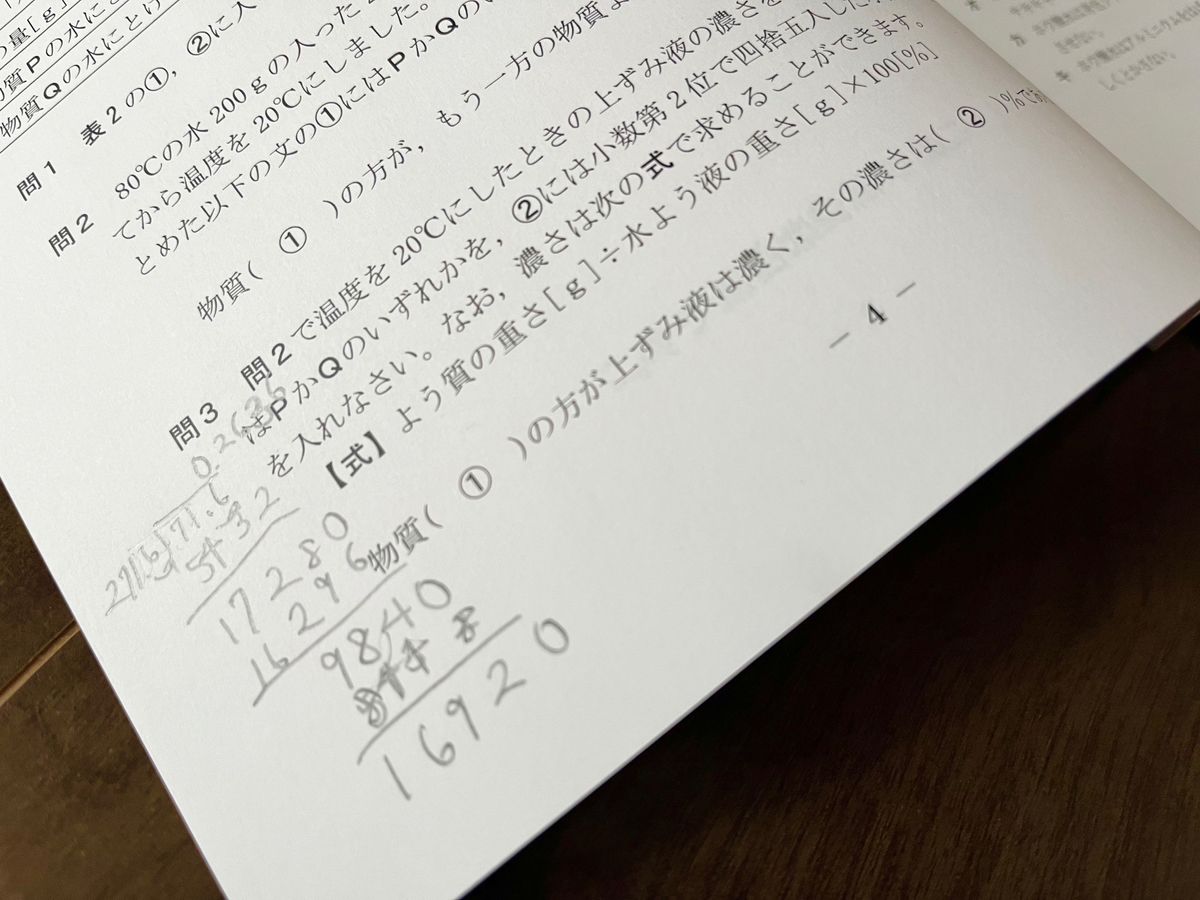 の量[g]
物質Pの水にと
物質Qの水にとけ
問1 表2の①，②に入
問2 80℃の水200gの入った
てから温度を20℃にしました。
とめた以下の文の①にはPかQの
物質( ① )の方が，もう一方の物質よ
問3 問2で温度を20℃にしたときの上ずみ液の濃さを
はPかQのいずれかを，②には小数第2位で四捨五入した
を入れなさい。なお，濃さは次の式で求めることができます。
【式】よう質の重さ[g]÷水よう液の重さ[g]×100[%]
物質( ① )の方が上ずみ液は濃く，その濃さは( ② )%です
— 4 —
0.2636
271.6 71.6
5432
17280
16296
9840
8148
16920